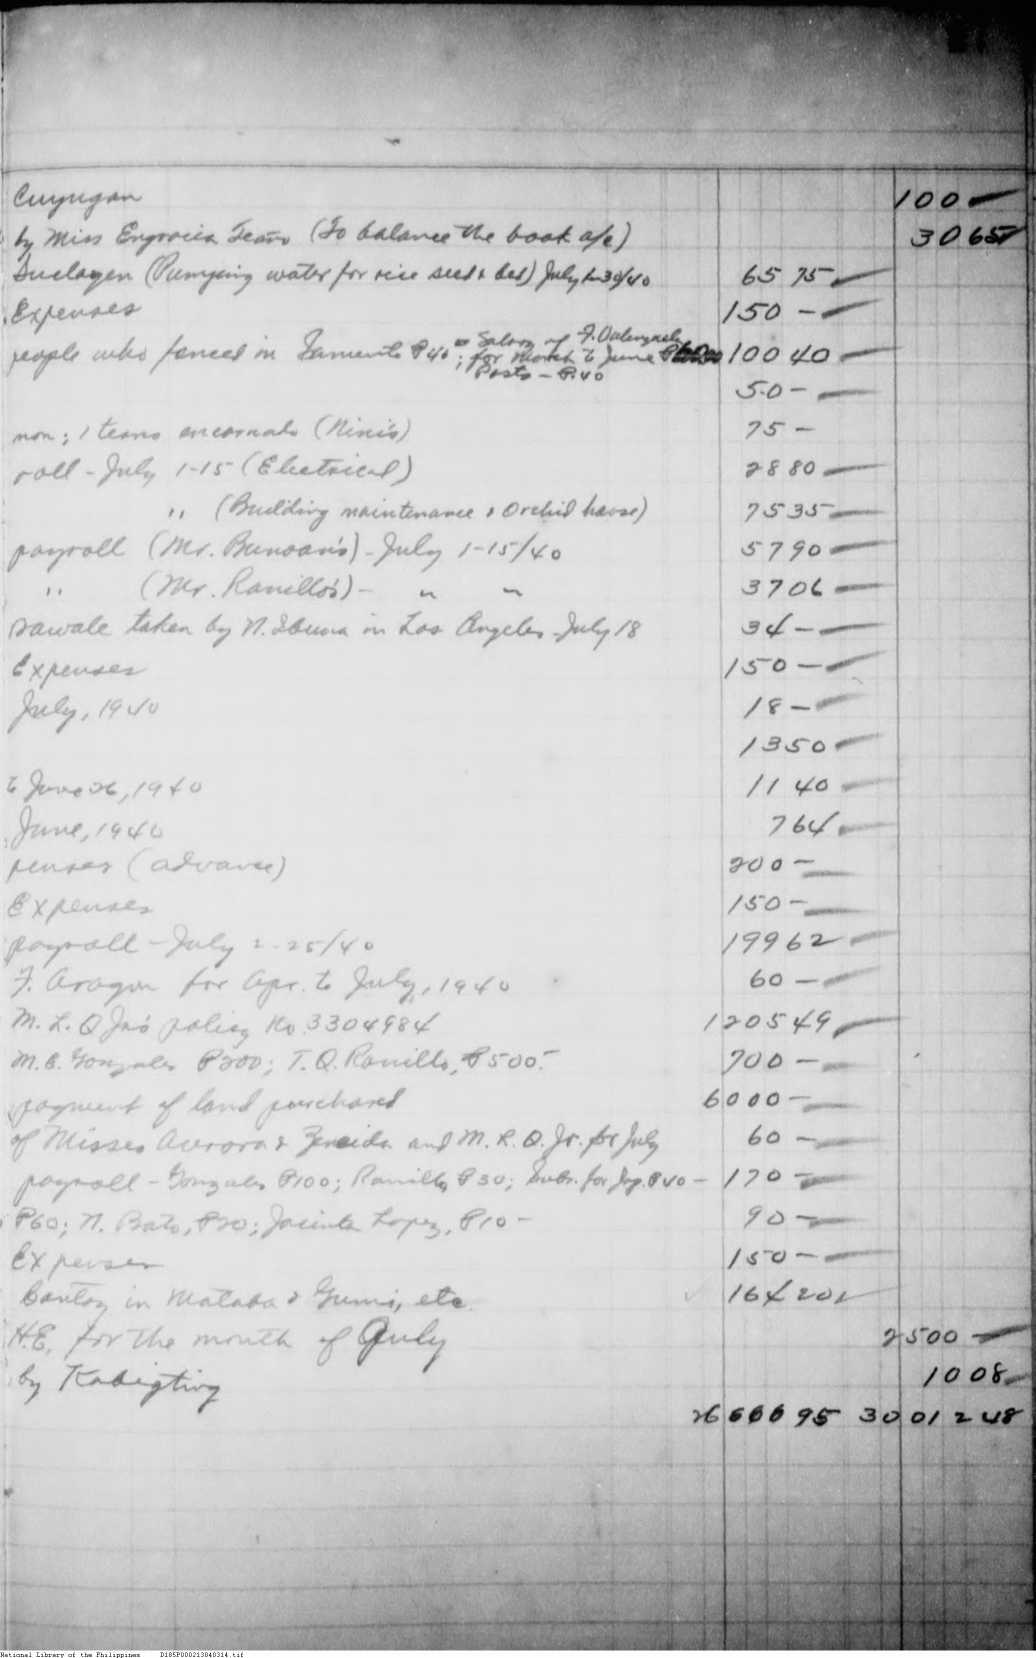 Cuyugan 100 —
by Miss Engracia Teaño (To balance the book a/c) 30 65
(Pumping water for rice seed bed) July 30/40 65 75
Expenses 150 —
people who fenced in ₱40 Salary of F.
; for March to June 100 40
Posts — ₱.40
50 —
non; 1 terno encarnado (Nini's) 75 —
roll - July 1-15 (Electrical) 28 80
" (Building maintenance & Orchid house) 75 35
payroll (Mr. Bunoan's) - July 1-15/40 57 90
" (Mr. Ranillo's) - " " 37 06
sawale taken by N. in Los Angeles July 18 34 —
Expenses 150 —
July, 1940 18 —
13 50
to June 26, 1940 11 40
June, 1940 7 64
penses (advance) 200 —
Expenses 150 —
payroll - July 2-25/40 199 62
F. Aragon for Apr. to July, 1940 60 —
M. L. Q Jr's policy No. 3304984 1205 49
M. B. Gonzales ₱200; T. Q. Ranillo, ₱500.— 700 —
payment of land purchased 6000 —
of Misses Aurora & Zeneida and M. L. Q. Jr. for July 60 —
payroll - Gonzales ₱100; Ranillo, ₱30; Subs. for ₱40 - 170 —
₱60; N. Bato, ₱20; Jacinta Lopez, ₱10 - 90 —
Expenses 150 —
Bantay in Mataba & Gumi, etc. 164 20
H.E. for the month of July 2500 —
by Kabigting 10 08
26 666 95 30 01 2 48
National Library of the Philippines D185P000213840314.tif